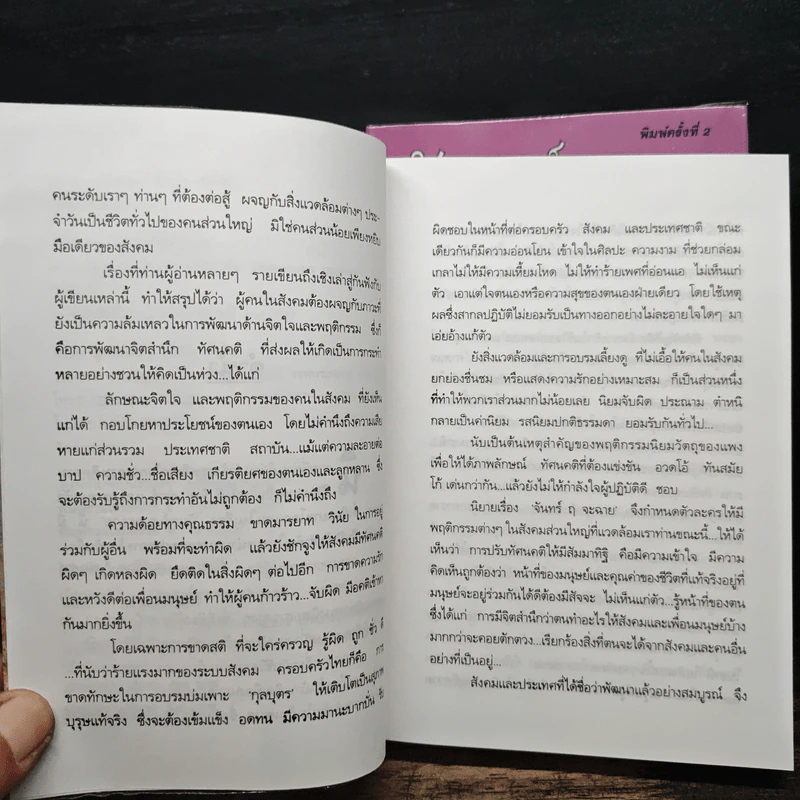 พิมพ์ครั้งที่ 2
คนระดับเราๆ ท่านๆ ที่ต้องต่อสู้ ผจญกับสิ่งแวดล้อมต่างๆ ประ-
จำวันเป็นชีวิตทั่วไปของคนส่วนใหญ่ มิใช่คนส่วนน้อยเพียงหยิบ
มือเดียวของสังคม
เรื่องที่ท่านผู้อ่านหลายๆ รายเขียนถึงเชิงเล่าสู่กันฟังกับ
ผู้เขียนเหล่านี้ ทำให้สรุปได้ว่า ผู้คนในสังคมต้องผจญกับภาวะที่
ยังเป็นความล้มเหลวในการพัฒนาด้านจิตใจและพฤติกรรม ซึ่งก็
คือการพัฒนาจิตสำนึก ทัศนคติ ที่ส่งผลให้เกิดเป็นการกระทำ
หลายอย่างชวนให้คิดเป็นห่วง...ได้แก่
ลักษณะจิตใจ และพฤติกรรมของคนในสังคม ที่ยังเห็น
แก่ได้ กอบโกยหาประโยชน์ของตนเอง โดยไม่คำนึงถึงความเสีย
หายแก่ส่วนรวม ประเทศชาติ สถาบัน...แม้แต่ความละอายต่อ
บาป ความชั่ว...ชื่อเสียง เกียรติยศของตนเองและลูกหลาน ซึ่ง
จะต้องรับรู้ถึงการกระทำอันไม่ถูกต้อง ก็ไม่คำนึงถึง
ความด้อยทางคุณธรรม ขาดมารยาท วินัย ในการอยู่
ร่วมกับผู้อื่น พร้อมที่จะทำผิด แล้วยังชักจูงให้สังคมมีทัศนคติ
ผิดๆ เกิดหลงผิด ยึดติดในสิ่งผิดๆ ต่อไปอีก การขาดความรัก
และหวังดีต่อเพื่อนมนุษย์ ทำให้ผู้คนก้าวร้าว...จับผิด มีอคติเข้าหา
กันมากยิ่งขึ้น
โดยเฉพาะการขาดสติ ที่จะใคร่ครวญ รู้ผิด ถูก ชั่ว ดี
...ที่นับว่าร้ายแรงมากของระบบสังคม ครอบครัวไทยก็คือ การ
ขาดทักษะในการอบรมบ่มเพาะ 'กุลบุตร' ให้เติบโตเป็นสุภาพ
บุรุษแท้จริง ซึ่งจะต้องเข้มแข็ง อดทน มีความมานะบากบั่น รับ
ผิดชอบในหน้าที่ต่อครอบครัว สังคม และประเทศชาติ ขณะ
เดียวกันก็มีความอ่อนโยน เข้าใจในศิลปะ ความงาม ที่ช่วยกล่อม
เกลาไม่ให้มีความเหี้ยมโหด ไม่ให้ทำร้ายเพศที่อ่อนแอ ไม่เห็นแก่
ตัว เอาแต่ใจตนเองหรือความสุขของตนเองฝ่ายเดียว โดยใช้เหตุ
ผลซึ่งสากลปฏิบัติไม่ยอมรับเป็นทางออกอย่างไม่ละอายใจใดๆ มา
เอ่ยอ้างแก้ตัว
ยังสิ่งแวดล้อมและการอบรมเลี้ยงดู ที่ไม่เอื้อให้คนในสังคม
ยกย่องชื่นชม หรือแสดงความรักอย่างเหมาะสม ก็เป็นส่วนหนึ่ง
ที่ทำให้พวกเราส่วนมากไม่น้อยเลย นิยมจับผิด ประณาม ตำหนิ
กลายเป็นค่านิยม รสนิยมปกติธรรมดา ยอมรับกันทั่วไป...
นับเป็นต้นเหตุสำคัญของพฤติกรรมนิยมวัตถุของแพง
เพื่อให้ได้ภาพลักษณ์ ทัศนคติที่ต้องแข่งขัน อวดโอ้ ทันสมัย
โก้ เด่นกว่ากัน...แล้วยังไม่ให้กำลังใจผู้ปฏิบัติดี ชอบ
นิยายเรื่อง 'จันทร์ ฤ จะฉาย' จึงกำหนดตัวละครให้มี
พฤติกรรมต่างๆ ในสังคมส่วนใหญ่ที่แวดล้อมเราท่านขณะนี้...ให้ได้
เห็นว่า การปรับทัศนคติให้มีสัมมาทิฐิ คือมีความเข้าใจ มีความ
คิดเห็นถูกต้องว่า หน้าที่ของมนุษย์และคุณค่าของชีวิตที่แท้จริงอยู่ที่
มนุษย์จะอยู่ร่วมกันได้ดีต้องมีสัจจะ ไม่เห็นแก่ตัว...รู้หน้าที่ของตน
ซึ่งได้แก่ การมีจิตสำนึกว่าตนทำอะไรให้สังคมและเพื่อนมนุษย์บ้าง
มากกว่าจะคอยตักตวง...เรียกร้องสิ่งที่ตนจะได้จากสังคมและคนอื่น
อย่างที่เป็นอยู่...
สังคมและประเทศที่ได้ชื่อว่าพัฒนาแล้วอย่างสมบูรณ์ จึง